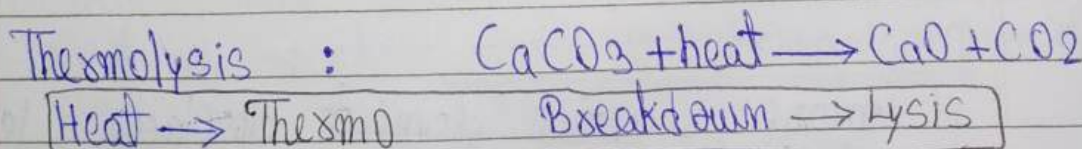 Thermolysis : CaCO3 + heat → CaO + CO2
Heat → Thermo Breakdown → Lysis